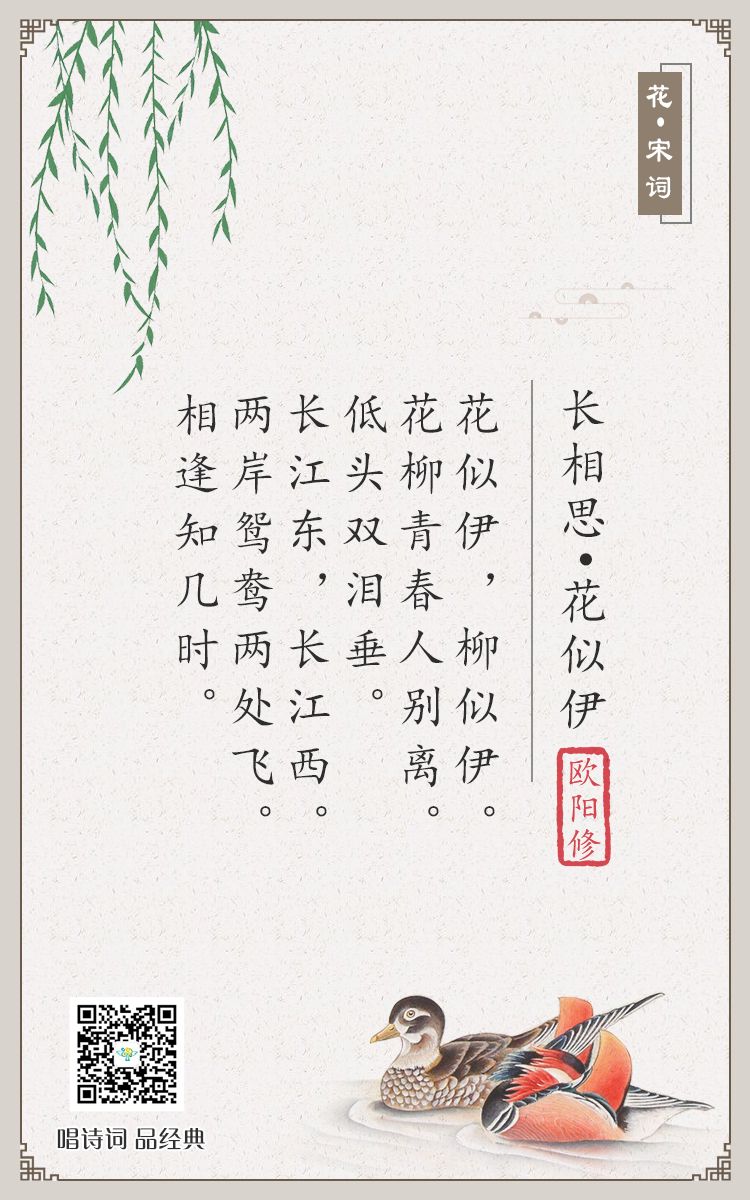 花·宋词
长相思·花似伊
欧阳修
花似伊，柳似伊。
花柳青春人别离。
低头双泪垂。
长江东，长江西。
两岸鸳鸯两处飞。
相逢知几时。
唱诗词 品经典